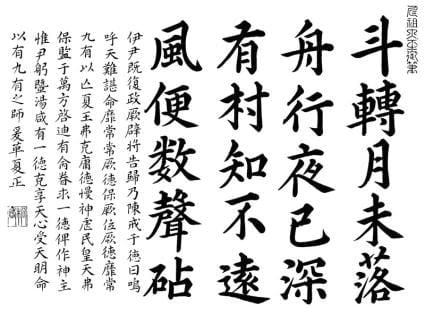 斗轉月未落
舟行夜已深
有村知不遠
風便数聲砧
伊尹既復政厥辟将告歸乃陳戒于德曰嗚
呼天難諶命靡常常厥德保厥位厥德靡常
九有以亡夏王弗克庸德慢神虐民皇天弗
保監于萬方啓迪有命眷求一德俾作神主
惟尹躬曁湯咸有一德克享天心受天明命
以有九有之師爰革夏正